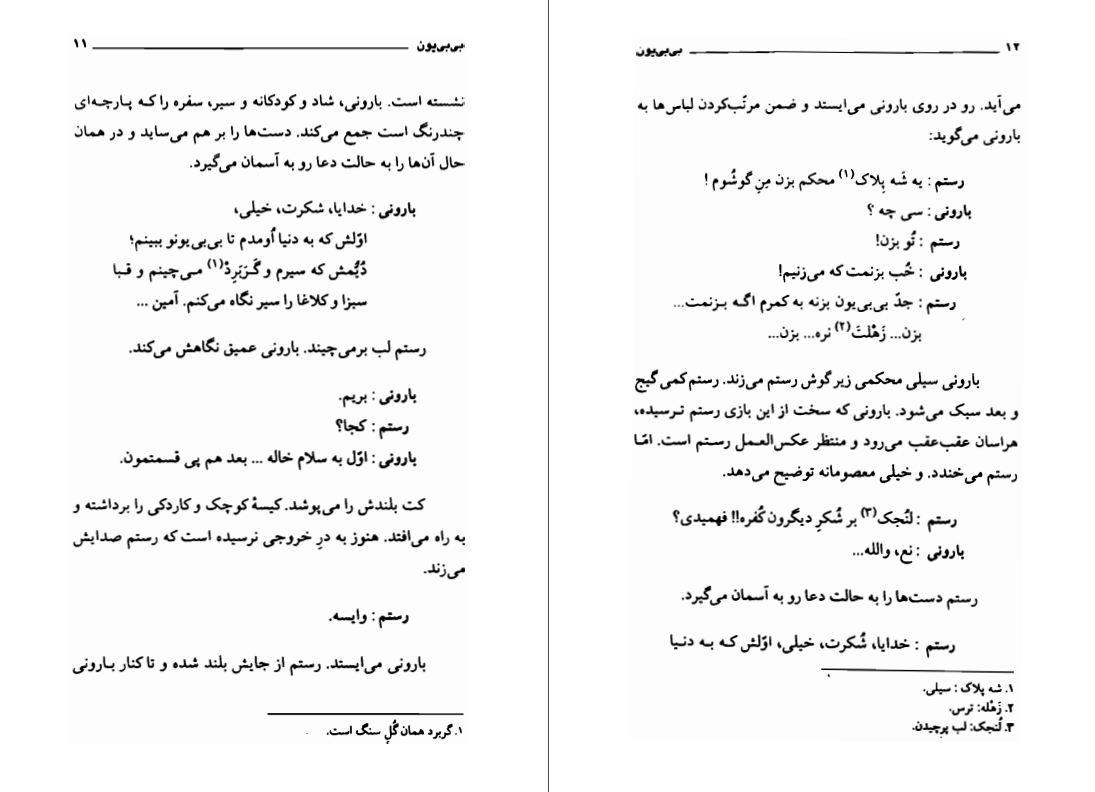 ۱۱ بی‌بی‌یون
نشسته است. بارونی، شاد و کودکانه و سیر، سفره را که پارچه‌ای
چندرنگ است جمع می‌کند. دست‌ها را بر هم می‌ساید و در همان
حال آن‌ها را به حالت دعا رو به آسمان می‌گیرد.
بارونی : خدایا، شکرت، خیلی،
اوّلش که به دنیا اُومدم تا بی‌بی‌یونو ببینم؛
دُیُّمش که سیرم و گَـرْبَرِدْ(۱) مـی‌چینم و قـبا
سبزا و کلاغا را سیر نگاه می‌کنم. آمین ...
رستم لب برمی‌چیند. بارونی عمیق نگاهش می‌کند.
بارونی : بریم.
رستم : کجا؟
بارونی : اوّل به سلام خاله ... بعد هم پی قسمتمون.
کت بلندش را می‌پوشد. کیسهٔ کوچک و کاردکی را برداشته و
به راه می‌افتد. هنوز به درِ خروجی نرسیده است که رستم صدایش
می‌زند.
رستم : وایسه.
بارونی می‌ایستد. رستم از جایش بلند شده و تا کنار بـارونی
۱. گربرد همان گُلِ سنگ است.
۱۲ بی‌بی‌یون
می‌آید. رو در روی بارونی می‌ایستد و ضمن مرتّب‌کردن لباس‌ها به
بارونی می‌گوید:
رستم : یه شَه پِلاک(۱) محکم بزن مِنِ گوشُوم !
بارونی : سی چه ؟
رستم : تُو بزن!
بارونی : خُب بزنمت که می‌زنیم!
رستم : جدّ بی‌بی‌یون بزنه به کمرم اگـه بـزنمت...
بزن... زَهْلتَ(۲) نره... بزن...
بارونی سیلی محکمی زیر گوش رستم می‌زند. رستم کمی گیج
و بعد سبک می‌شود. بارونی که سخت از این بازی رستم تـرسیده،
هراسان عقب‌عقب می‌رود و منتظر عکس‌العمل رسـتم است. امّـا
رستم می‌خندد. و خیلی معصومانه توضیح می‌دهد.
رستم : لُنجک(۳) بر شُکرِ دیگرون کُفره!! فهمیدی؟
بارونی : نع، والله...
رستم دست‌ها را به حالت دعا رو به آسمان می‌گیرد.
رستم : خدایـا، شُکرت، خیلی، اوّلش کـه بـه دنـیا
۱. شه پلاک : سیلی.
۲. زَهْله: ترس.
۳. لُنجک: لب برچیدن.